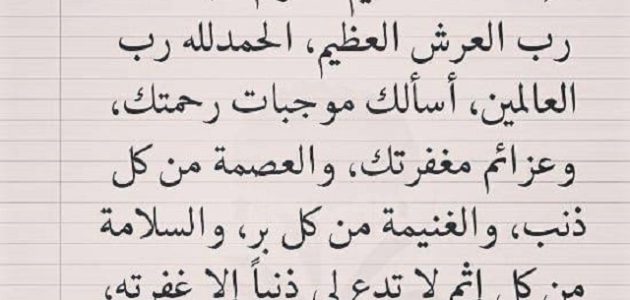 رب العرش العظيم، الحمدلله رب
العالمين، أسألك موجبات رحمتك،
وعزائم مغفرتك، والعصمة من كل
ذنب، والغنيمة من كل بر، والسلامة
من كل إثم لا تدع لي ذنباً إلا غفرته،